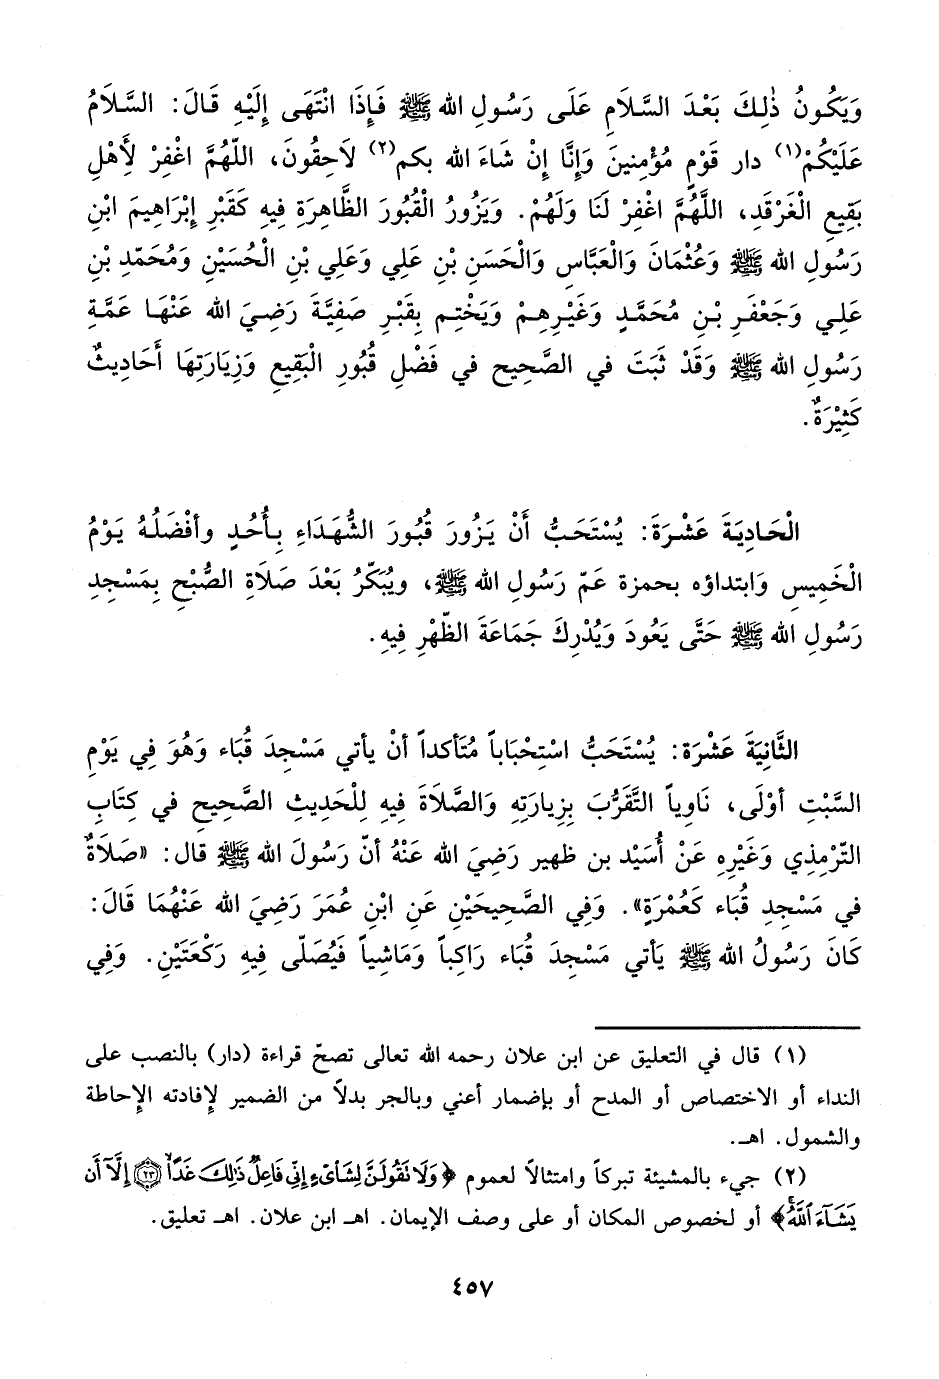 وَيَكُونُ ذٰلِكَ بَعْدَ السَّلَامِ عَلَى رَسُولِ الله ﷺ فَإِذَا انْتَهَى إِلَيْهِ قَالَ: السَّلَامُ
عَلَيْكُمْ(١) دار قَوْمٍ مُؤْمِنينَ وَإِنَّا إِنْ شَاءَ الله بكم(٢) لاَحِقُونَ، اللّهُمَّ اغْفِرْ لِأَهْلِ
بَقِيعِ الْغَرْقَدِ، اللَّهُمَّ اغْفِرْ لَنَا وَلَهُمْ. وَيَزُورُ الْقُبُورَ الظَّاهِرَةِ فِيهِ كَقَبْرِ إِبْرَاهِيمَ ابْنِ
رَسُولِ الله ﷺ وَعُثْمَانَ وَالْعَبَّاسِ وَالْحَسَنِ بْنِ عَلِي وَعَلِي بْنِ الْحُسَيْنِ وَمُحَمّدِ بْنِ
عَلِي وَجَعْفَرِ بْنِ مُحَمَّدٍ وَغَيْرِهِمْ وَيَخْتِم بِقَبْرِ صَفِيَّةَ رَضِيَ الله عَنْهَا عَمَّةِ
رَسُولِ الله ﷺ وَقَدْ ثَبَتَ في الصَّحِيح في فَضْلِ قُبُورِ الْبَقِيعِ وَزِيَارَتِهَا أَحَادِيثٌ
كَثِيْرَةٌ.
الْحَادِيَةَ عَشْرَةَ: يُسْتَحَبُّ أَنْ يَزُورَ قُبُورَ الشُّهَدَاءِ بِأُحُدٍ وأفْضَلُهُ يَوْمُ
الْخَمِيسِ وَابتداؤه بحمزة عَمّ رَسُولِ الله ﷺ، ويُبَكّرُ بَعْدَ صَلَاةِ الصُّبْحِ بِمَسْجِدِ
رَسُولِ الله ﷺ حَتَّى يَعُودَ وَيُدْرِكَ جَمَاعَةَ الظّهْرِ فِيهِ.
الثَّانِيَةَ عَشْرَة: يُسْتَحَبُّ اسْتِحْبَاباً مُتَأكداً أنْ يأتي مَسْجِدَ قُبَاء وَهُوَ فِي يَوْمِ
السَّبْتِ أوْلَى، نَاوِياً التَّقَرُّبَ بِزِيَارَتِهِ وَالصَّلَاةَ فِيهِ لِلْحَدِيثِ الصَّحِيحِ في كِتَابِ
التّرْمِذي وَغَيْرِهِ عَنْ أُسَيْد بن ظهير رَضِيَ الله عَنْهُ أنّ رَسُولَ الله ﷺ قال: «صَلَاةٌ
في مَسْجِدِ قُبَاء كَعُمْرَةٍ». وَفِي الصَّحِيحَيْنِ عَنِ ابْنِ عُمَرَ رَضِيَ الله عَنْهُمَا قَالَ:
كَانَ رَسُولُ الله ﷺ يَأتي مَسْجِدَ قُبَاء رَاكِباً وَمَاشِياً فَيُصَلّى فِيهِ رَكْعَتَيْنِ. وَفِي
(١) قال في التعليق عن ابن علان رحمه الله تعالى تصحّ قراءة (دار) بالنصب على
النداء أو الاختصاص أو المدح أو بإضمار أعني وبالجر بدلاً من الضمير لإفادته الإحاطة
والشمول. اهـ.
(٢) جيء بالمشيئة تبركاً وامتثالاً لعموم ﴿وَلَا تَقُولَنَّ لِشَاْىْءٍ إِنِّى فَاعِلٌ ذَٰلِكَ غَدًا ٢٣ إِلَّآ أَن
يَشَآءَ ٱللَّهُ﴾ أو لخصوص المكان أو على وصف الإيمان. اهـ ابن علان. اهـ تعليق.
٤٥٧